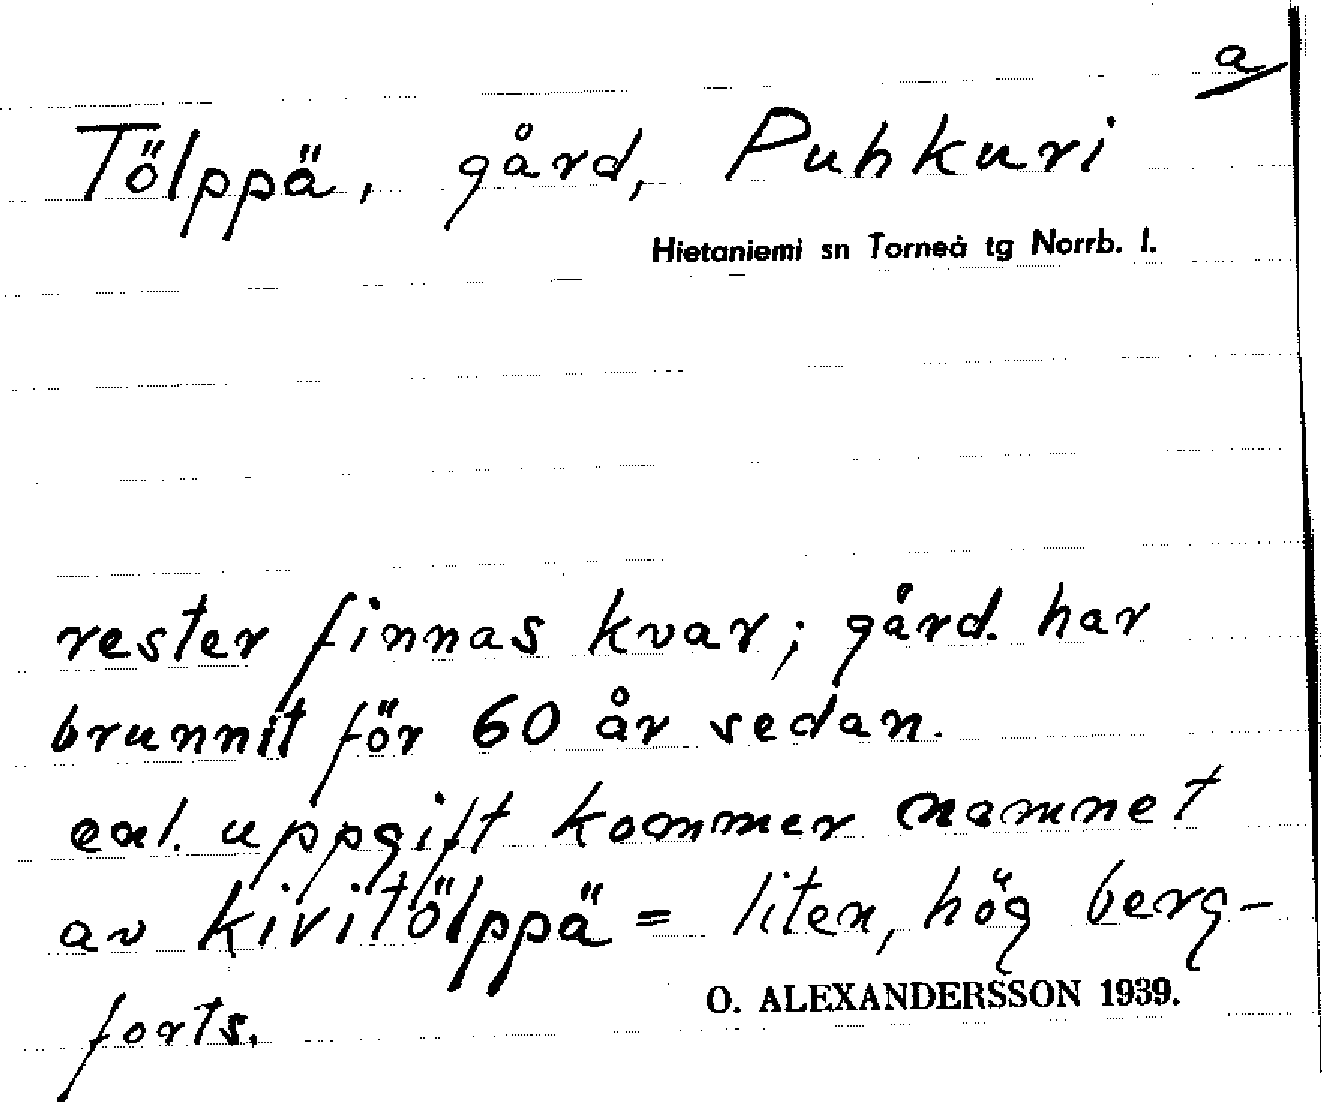 a
Tölppä, gård, Puhkuri
Hietaniemi sn Torneå tg Norrb. l.
rester finnas kvar; gård. har
brunnit för 60 år sedan.
enl. uppgift kommer namnet
av kivitölppä = liten, hög berg-
forts.
O. ALEXANDERSSON 1939.